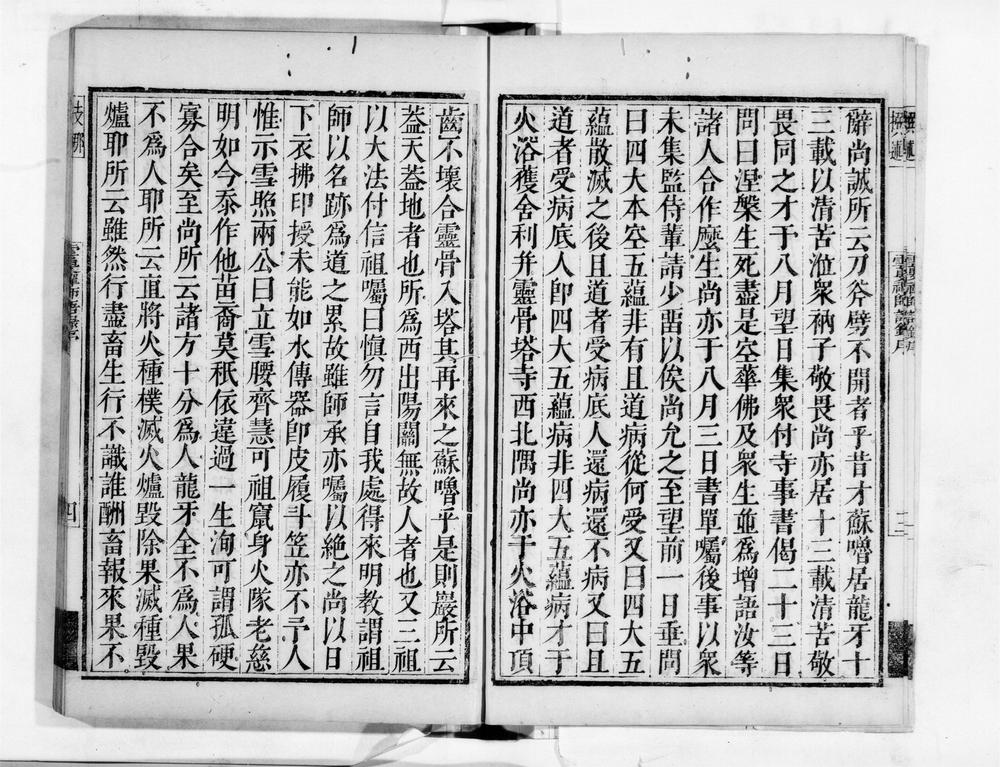 辭尚誠所云刀斧劈不開者乎昔才蘇嚕居龍牙十
三載以清苦涖衆衲子敬畏尚亦居十三載清苦敬
畏同之才于八月望日集衆付寺事書偈二十三日
問曰涅槃生死盡是空華佛及衆生並爲增語汝等
諸人合作麽生尚亦于八月三日書單囑後事以衆
未集監侍輩請少畱以俟尚允之至望前一日垂問
曰四大本空五蘊非有且道病從何受又曰四大五
蘊散滅之後且道者受病底人還病還不病又曰且
道者受病底人卽四大五蘊病非四大五蘊病才于
火浴獲舍利幷靈骨塔寺西北隅尚亦于火浴中頂
齒不壞合靈骨入塔其再來之蘇嚕乎是則嚴所云
葢天葢地者也所爲西出陽關無故人者也又二祖
以大法付信祖囑曰愼勿言自我處得來明教謂祖
師以名跡爲道之累故雖師承亦囑以絶之尚以日
下衣拂印授未能如水傳器卽皮履斗笠亦不予人
惟示雪照兩公曰立雪腰齊慧可祖竄身火隊老慈
明如今忝作他苗裔莫秖依違過一生洵可謂孤硬
寡合矣至尚所云諸方十分爲人龍牙全不爲人果
不爲人耶所云直將火種樸滅火爐毀除果滅種毀
爐耶所云雖然行盡畜生行不識誰酬畜報來果不
四